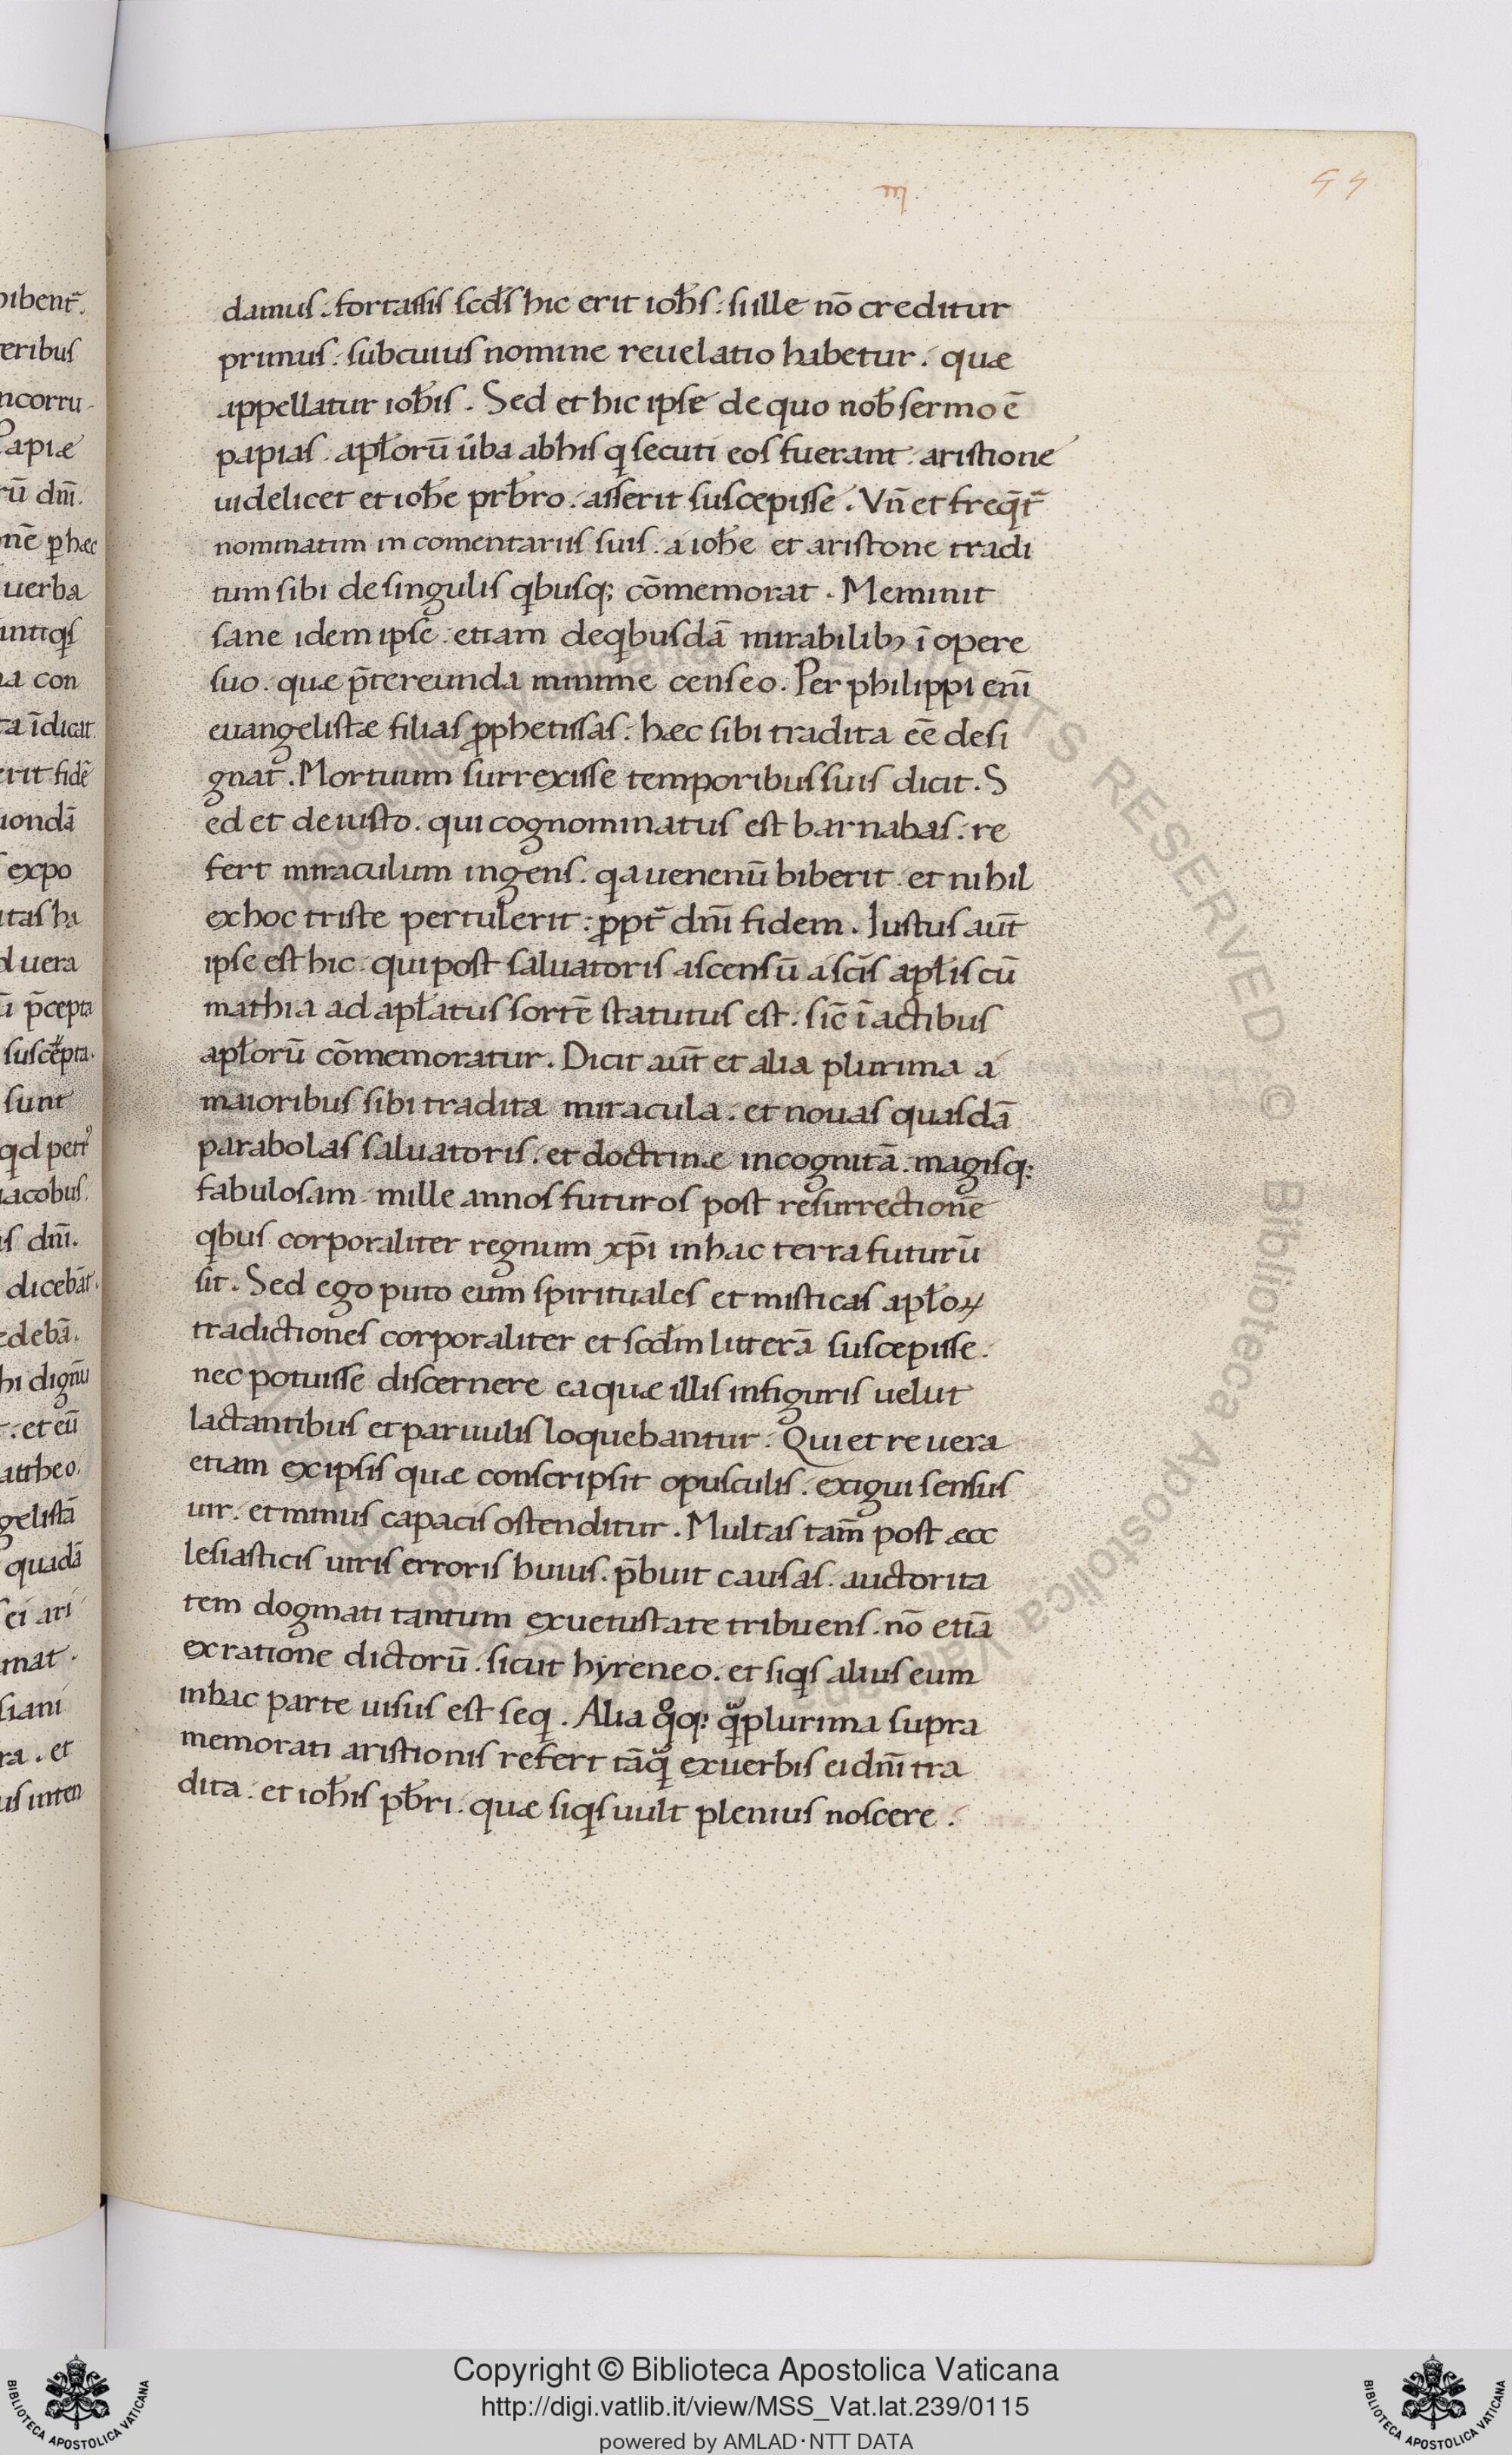 54
III
damus. fortassis scd̄s hic erit ioh̄s. si ille nō creditur
primus. sub cuius nomine reuelatio habetur. quæ
appellatur ioh̄is. Sed et hic ipse de quo nob̄ sermo ē
papias. apl̄orū ūba ab his q̇ secuti eos fuerant. aristione
uidelicet et ioh̄e prb̄ro. asserit suscepisse. Vn̄ et freq̄t᷑
nominatim in comentariis suis. a ioh̄e et aristone tradi
tum sibi de singulis qͥbusq; cōmemorat. Meminit
sane idem ipse etiam de qͥbusdā mirabilibꝫ ī opere
suo. quæ p̄tereunda minime censeo. Per philippi eni̅
euangelistæ filias ꝓphetissas. hæc sibi tradita eē desi
gnat̄. Mortuum surrexisse temporibus suis dicit. S
ed et de iusto. qui cognominatus est barnabas. re
fert miraculum ingens. qͥa uenenū biberit et nihil
ex hoc triste pertulerit. ꝓpt᷑ dn̄i fidem. Iustus aut̄
ipse est hic. qui post saluatoris ascensū a sc̄is apl̄is cū
mathia ad apl̄atus sortē statutus est. sic̄ ī actibus
apl̄orū cōmemoratur. Dicit aut̄ et alia plurima a
maioribus sibi tradita miracula. et nouas quasdā
parabolas saluatoris. et doctrinæ incognitā. magisq;
fabulosam. mille annos futuros post resurrectionē
qͥbus corporaliter regnum xp̄i in hac terra futurū
sit. Sed ego puto eum spirituales et misticas apl̄oꝝ
tradictiones corporaliter et scd̄m litterā suscepisse.
nec potuisse discernere ea quæ illis in figuris uelut
lactantibus et paruulis loquebantur. Qui et re uera
etiam ex ipsis quæ conscripsit opusculis. exigui sensus
uir. et minus capacis ostenditur. Multas tam̄ post æcc
lesiasticis uiris erroris huius. p̄buit causas. auctorita
tem dogmati tantum ex uetustate tribuens. nō etiā
ex ratione dictorū. sicut hyreneo. et siqͥs alius eum
in hac parte uisus est seqͥ. Alia qͦq; qͣplurima supra
memorati aristionis refert tāqͣ ex uerbis ei dn̄i tra
dita. et ioh̄is pb̄ri. quæ siqͥs uult plenius noscere.
Copyright © Biblioteca Apostolica Vaticana
http://digi.vatlib.it/view/MSS_Vat.lat.239/0115
powered by AMLAD·NTT DATA
BIBLIOTECA APOSTOLICA VATICANA
BIBLIOTECA APOSTOLICA VATICANA